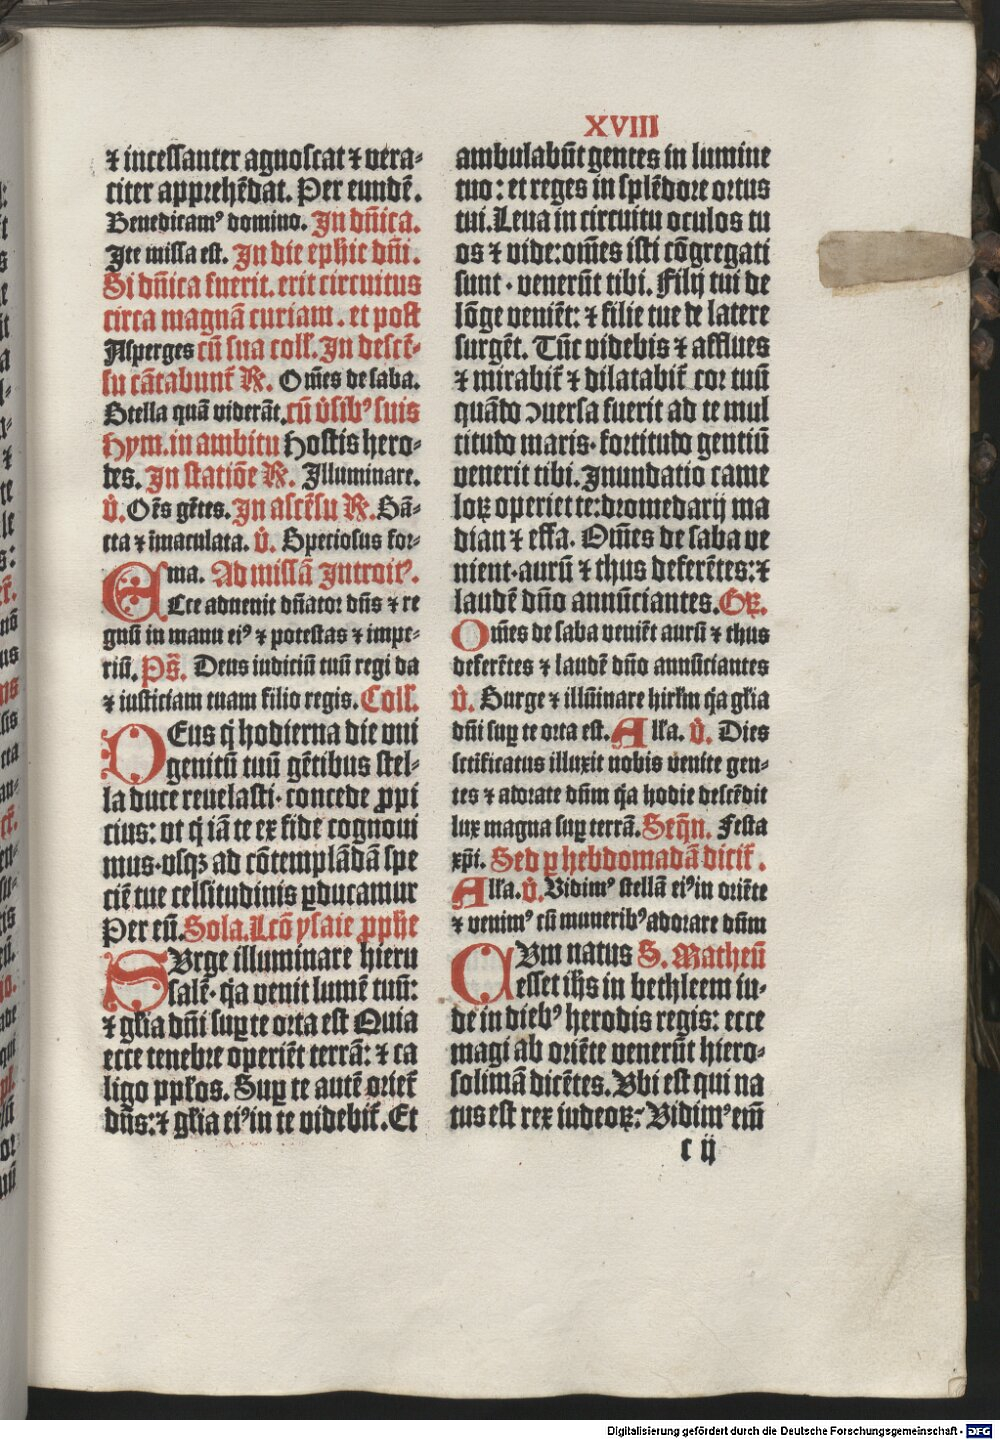 XVIII
⁊ incessanter agnoscat ⁊ vera-
citer apprehēdat. Per eundē.
Benedicamꝰ domino. In dn̄ica.
Ite missa est. In die ephie dn̄i.
Si dn̄ica fuerit. erit circuitus
circa magnā curiam. et post
Asperges cū sua coll̄. In descē-
su cātabunt̄ ℞. Om̄es de saba.
Stella quā viderāt. cū v̓sibꝰ suis
Hym. in ambitu Hostis hero-
des. In statiōe ℞. Illuminare.
v̓. Oēs gētes. In ascēsu ℞. Sā-
cta ⁊ īmaculata. v̓. Speciosus for-
ma. Ad missā Introitꝰ.
Ecce aduenit dn̄ator dn̄s ⁊ re
gnū in manu eiꝰ ⁊ potestas ⁊ impe-
riū. Ps̄. Deus iudiciū tuū regi da
⁊ iusticiam tuam filio regis. Coll̄.
DEus q̇ hodierna die vni
genitū tuū gētibus stel-
la duce reuelasti· concede ꝓpi
cius: vt q̇ iā te ex fide cognoui
mus·vsqꝫ ad cōtemplādā spe
ciē tue celsitudinis ꝑducamur
Per eū. Sola. Lcō ysaie ꝓph̄e
SVrge illuminare hieru
salē· q̇a venit lumē tuū:
⁊ gl̄ia dn̄i suꝑ te orta est Quia
ecce tenebre operiēt terrā: ⁊ ca
ligo ppl̄os. Suꝑ te autē oriet̄
dn̄s: ⁊ gl̄ia eiꝰ in te videbit̄. Et
ambulabūt gentes in lumine
tuo: et reges in splēdore ortus
tui. Leua in circuitu oculos tu
os ⁊ vide: om̄es isti cōgregati
sunt· venerūt tibi. Filij tui de
lōge veniēt: ⁊ filie tue de latere
surgēt. Tūc videbis ⁊ afflues
⁊ mirabit̄ ⁊ dilatabit̄ cor tuū
quādo ↄuersa fuerit ad te mul
titudo maris· fortitudo gentiū
venerit tibi. Inundatio came
loꝝ operiet te: dromedarij ma
dian ⁊ effa. Om̄es de saba ve
nient· aurū ⁊ thus deferētes: ⁊
laudē dn̄o annūciantes. Gꝝ.
Om̄es de saba veniēt aurū ⁊ thus
deferētes ⁊ laudē dn̄o annūciantes
v̓. Surge ⁊ illūinare hirl̄m q̇a gl̄ia
dn̄i suꝑ te orta est. All̄a. v̓. Dies
sctificatus illuxit nobis venite gen-
tes ⁊ adorate dn̄m q̇a hodie descēdit
lux magna suꝑ terrā. Seq̄n. Festa
xp̄i. Sed ꝑ hebdomadā dicit̄.
All̄a. v̓. Vidimꝰ stellā eiꝰ in oriēte
⁊ venimꝰ cū muneribꝰ adorare dn̄m
CVm natus S. Matheū
esset ih̄s in bethleem iu-
de in diebꝰ herodis regis: ecce
magi ab oriēte venerūt hiero-
solimā dicētes. Vbi est qui na
tus est rex iudeoꝝ: Vidimꝰ em̄
c ij
Digitalisierung gefördert durch die Deutsche Forschungsgemeinschaft - DFG